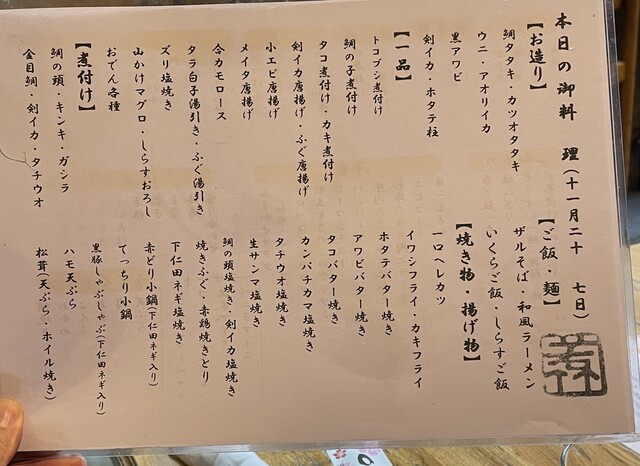 本日の御料理(十一月二十七日)
【お造り】
鯛タタキ・カツオタタキ
ウニ・アオリイカ
黒アワビ
剣イカ・ホタテ柱
【一品】
トコブシ煮付け
鯛の子煮付け
タコ煮付け・カキ煮付け
剣イカ唐揚げ・ふぐ唐揚げ
小エビ唐揚げ
メイタ唐揚げ
合カモロース
タラ白子湯引き・ふぐ湯引き
ズリ塩焼き
山かけマグロ・しらすおろし
おでん各種
【煮付け】
鯛の頭・キンキ・ガシラ
金目鯛・剣イカ・タチウオ
【ご飯・麺】
ザルそば・和風ラーメン
いくらご飯・しらすご飯
【焼き物・揚げ物】
一口ヘレカツ
イワシフライ・カキフライ
ホタテバター焼き
アワビバター焼き
タコバター焼き
カンパチカマ塩焼き
タチウオ塩焼き
生サンマ塩焼き
鯛の頭塩焼き・剣イカ塩焼き
焼きふぐ・赤鶏焼きとり
下仁田ネギ塩焼き
赤どり小鍋(下仁田ネギ入り)
てっちり小鍋
黒豚しゃぶしゃぶ(下仁田ネギ入り)
ハモ天ぷら
松茸(天ぷら・ホイル焼き)